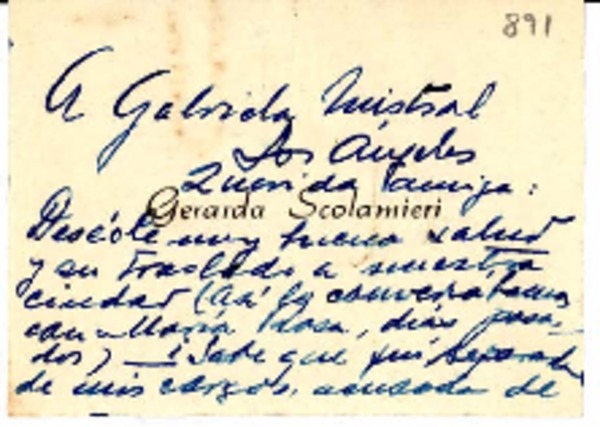 891
A Gabriela Mistral
Los Ángeles
Querida amiga:
Gerarda Scolamieri
Deséole muy buena salud
y su traslado a nuestra
ciudad (así lo conversamos
con María Rosa, días pasa-
dos) — ¿Sabe que fuí separada
de mis cargos, acusada de